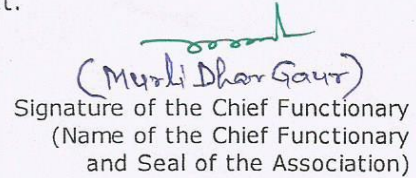 t.
(Murli Dhar Gaur)
Signature of the Chief Functionary
(Name of the Chief Functionary
and Seal of the Association)